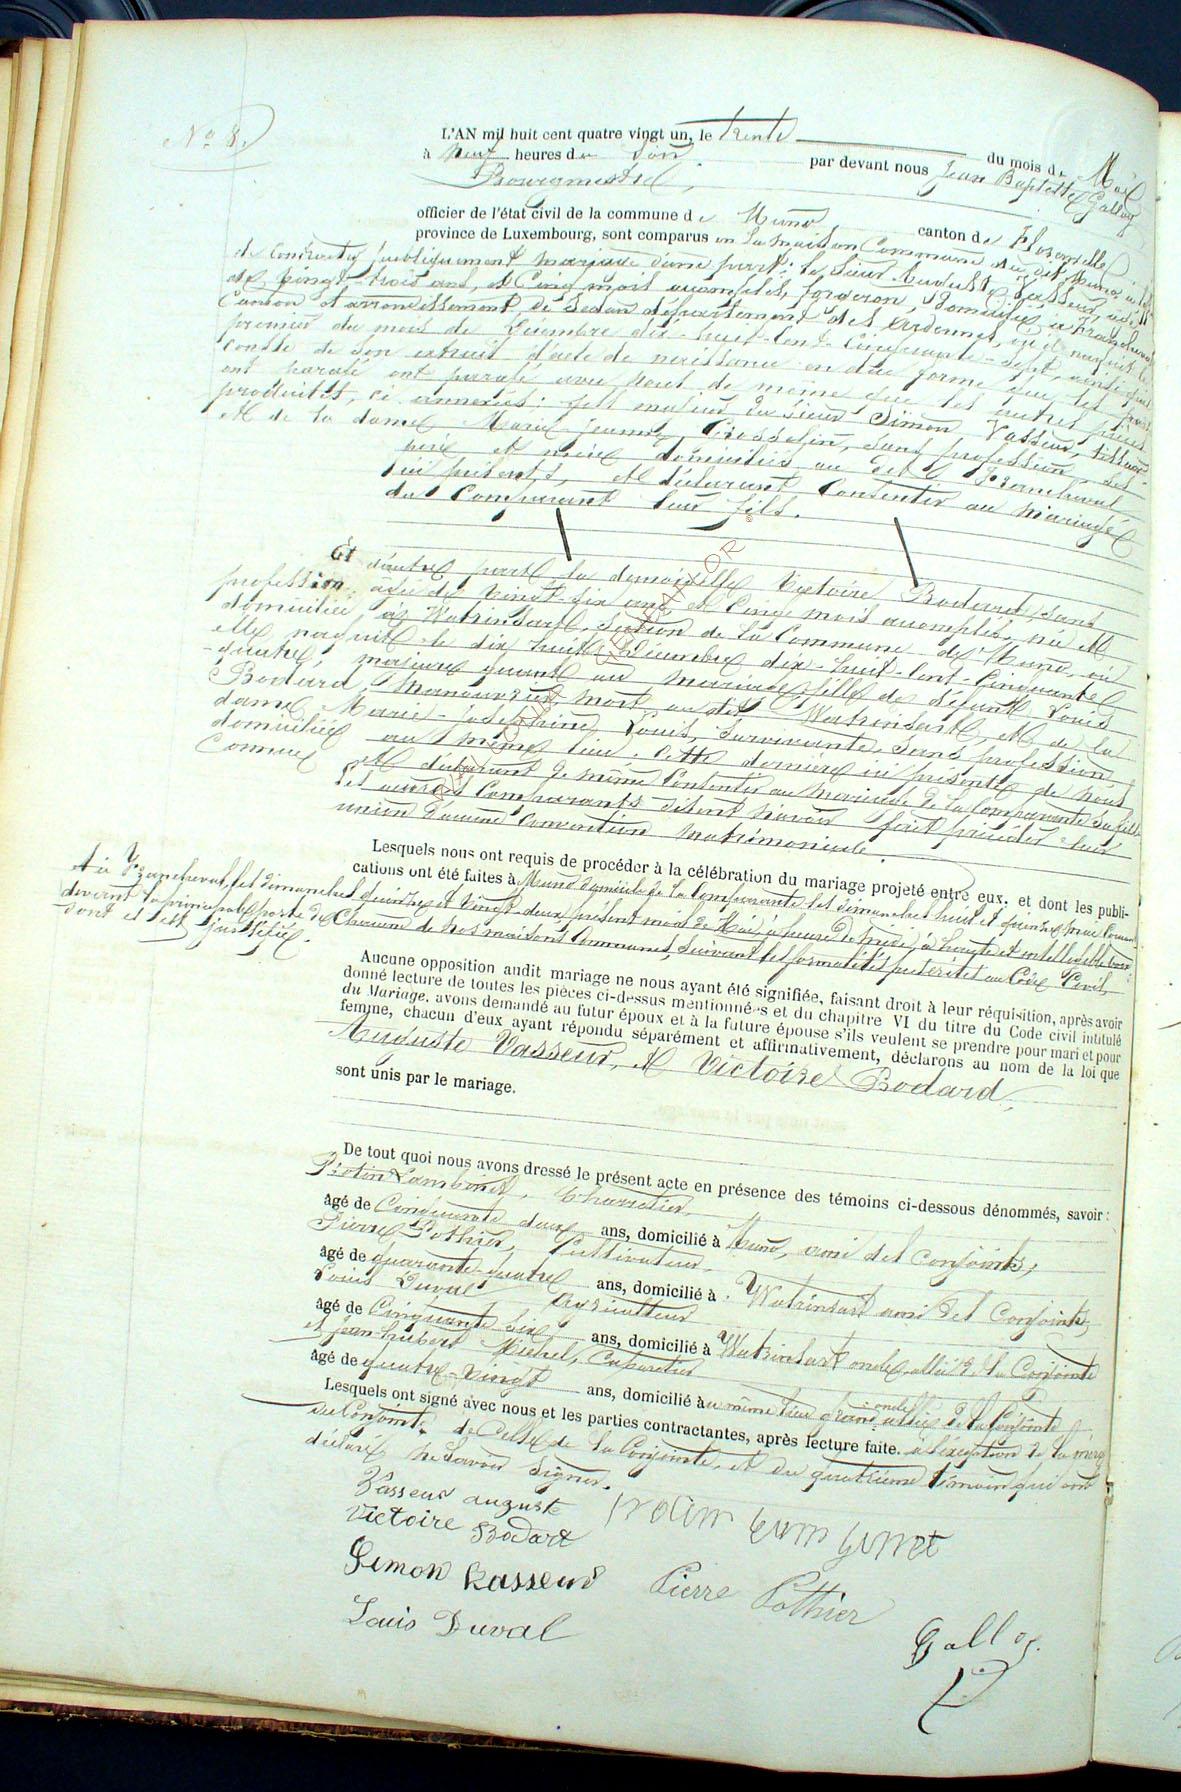 N° 8.
L'AN mil huit cent quatre vingt un, le trente du mois de Mai
à neuf heures du soir par devant nous Jean Baptiste Galloy
Bourgmestre,
officier de l'état civil de la commune de Muno canton de Florenville
province de Luxembourg, sont comparus en la maison Commune du dit Muno
de contracter publiquement mariage d'une part: le sieur Auguste Vasseur, agé
de vingt-trois ans, et Cinq mois accomplis, forgeron, domicilié à Francheval
Canton et arrondissement de Sedan département des Ardennes, où il naquit le
premier du mois de Décembre dix-huit-cent-Cinquante-Sept, ainsi qu'il
conste de son extrait d'acte de naissance en due forme que les
ont parafé ont parafé avec nous de même que les autres pièces
produites, ci annexées: fils majeur du sieur Simon Vasseur, tisseur
et de la dame Marie-Jeanne Grosselin, sans profession ses
père et mère domiciliés au dit Francheval
ici présents, et déclarant Consentir au mariage
du Comparant leur fils.
Et d'autre part la demoiselle Victoire Bodard, sans
profession, agée de vingt-six ans et Cinq mois accomplis, née et
domiciliée à Watrinsart, section de la Commune de Muno, où
elle naquit le dix huit Décembre dix-huit-cent-Cinquante
-quatre, majeure quant au mariage, fille de défunt Louis
Bodard, manouvrier, mort au dit Watrinsart, et de la
dame Marie-Joséphine Louis, survivante, sans profession
domiciliée au même lieu. Cette dernière ici présente de nous
Connue et déclarant de même Consentir au mariage de la Comparante sa fille
Les Comparants disent n'avoir fait précéder leur
union d'aucune Convention matrimoniale.
Lesquels nous ont requis de procéder à la célébration du mariage projeté entre eux, et dont les publi-
cations ont été faites à Muno domicile de la Comparante les dimanches huit et quinze mai Courant
et à Francheval, les dimanches quinze et vingt-deux présent mois de Mai, à heure de midi, à haute et intelligible voix
devant la principale porte de Chacune de nos maisons Communes, suivant les formalités prescrites au Code Civil,
dont il est justifié.
Aucune opposition audit mariage ne nous ayant été signifiée, faisant droit à leur réquisition, après avoir
donné lecture de toutes les pièces ci-dessus mentionnées et du chapitre VI du titre du Code civil intitulé
du Mariage, avons demandé au futur époux et à la future épouse s'ils veulent se prendre pour mari et pour
femme, chacun d'eux ayant répondu séparément et affirmativement, déclarons au nom de la loi que
Auguste Vasseur, et Victoire Bodard,
sont unis par le mariage.
De tout quoi nous avons dressé le présent acte en présence des témoins ci-dessous dénommés, savoir:
Protin Lambinet, Charretier,
âgé de Cinquante deux ans, domicilié à Muno, ami des Conjoints,
Pierre Pothier, Cultivateur,
âgé de quarante-quatre ans, domicilié à Watrinsart ami des Conjoints,
Louis Duval Agriculteur
âgé de Cinquante six ans, domicilié à Watrinsart oncle, allié de la Conjointe
et Jean-hubert Michel, Cabaretier
âgé de quatre-vingt ans, domicilié au même lieu grand oncle allié de la Conjointe
Lesquels ont signé avec nous et les parties contractantes, après lecture faite. à l'exception de la mère
du Conjoint, de Celle de la Conjointe, et du quatrième témoin qui ont
déclaré ne savoir signer.
Vasseur auguste
Victoire Bodart
Simon Vasseur Pierre Pothier
Louis Duval
Galloy.